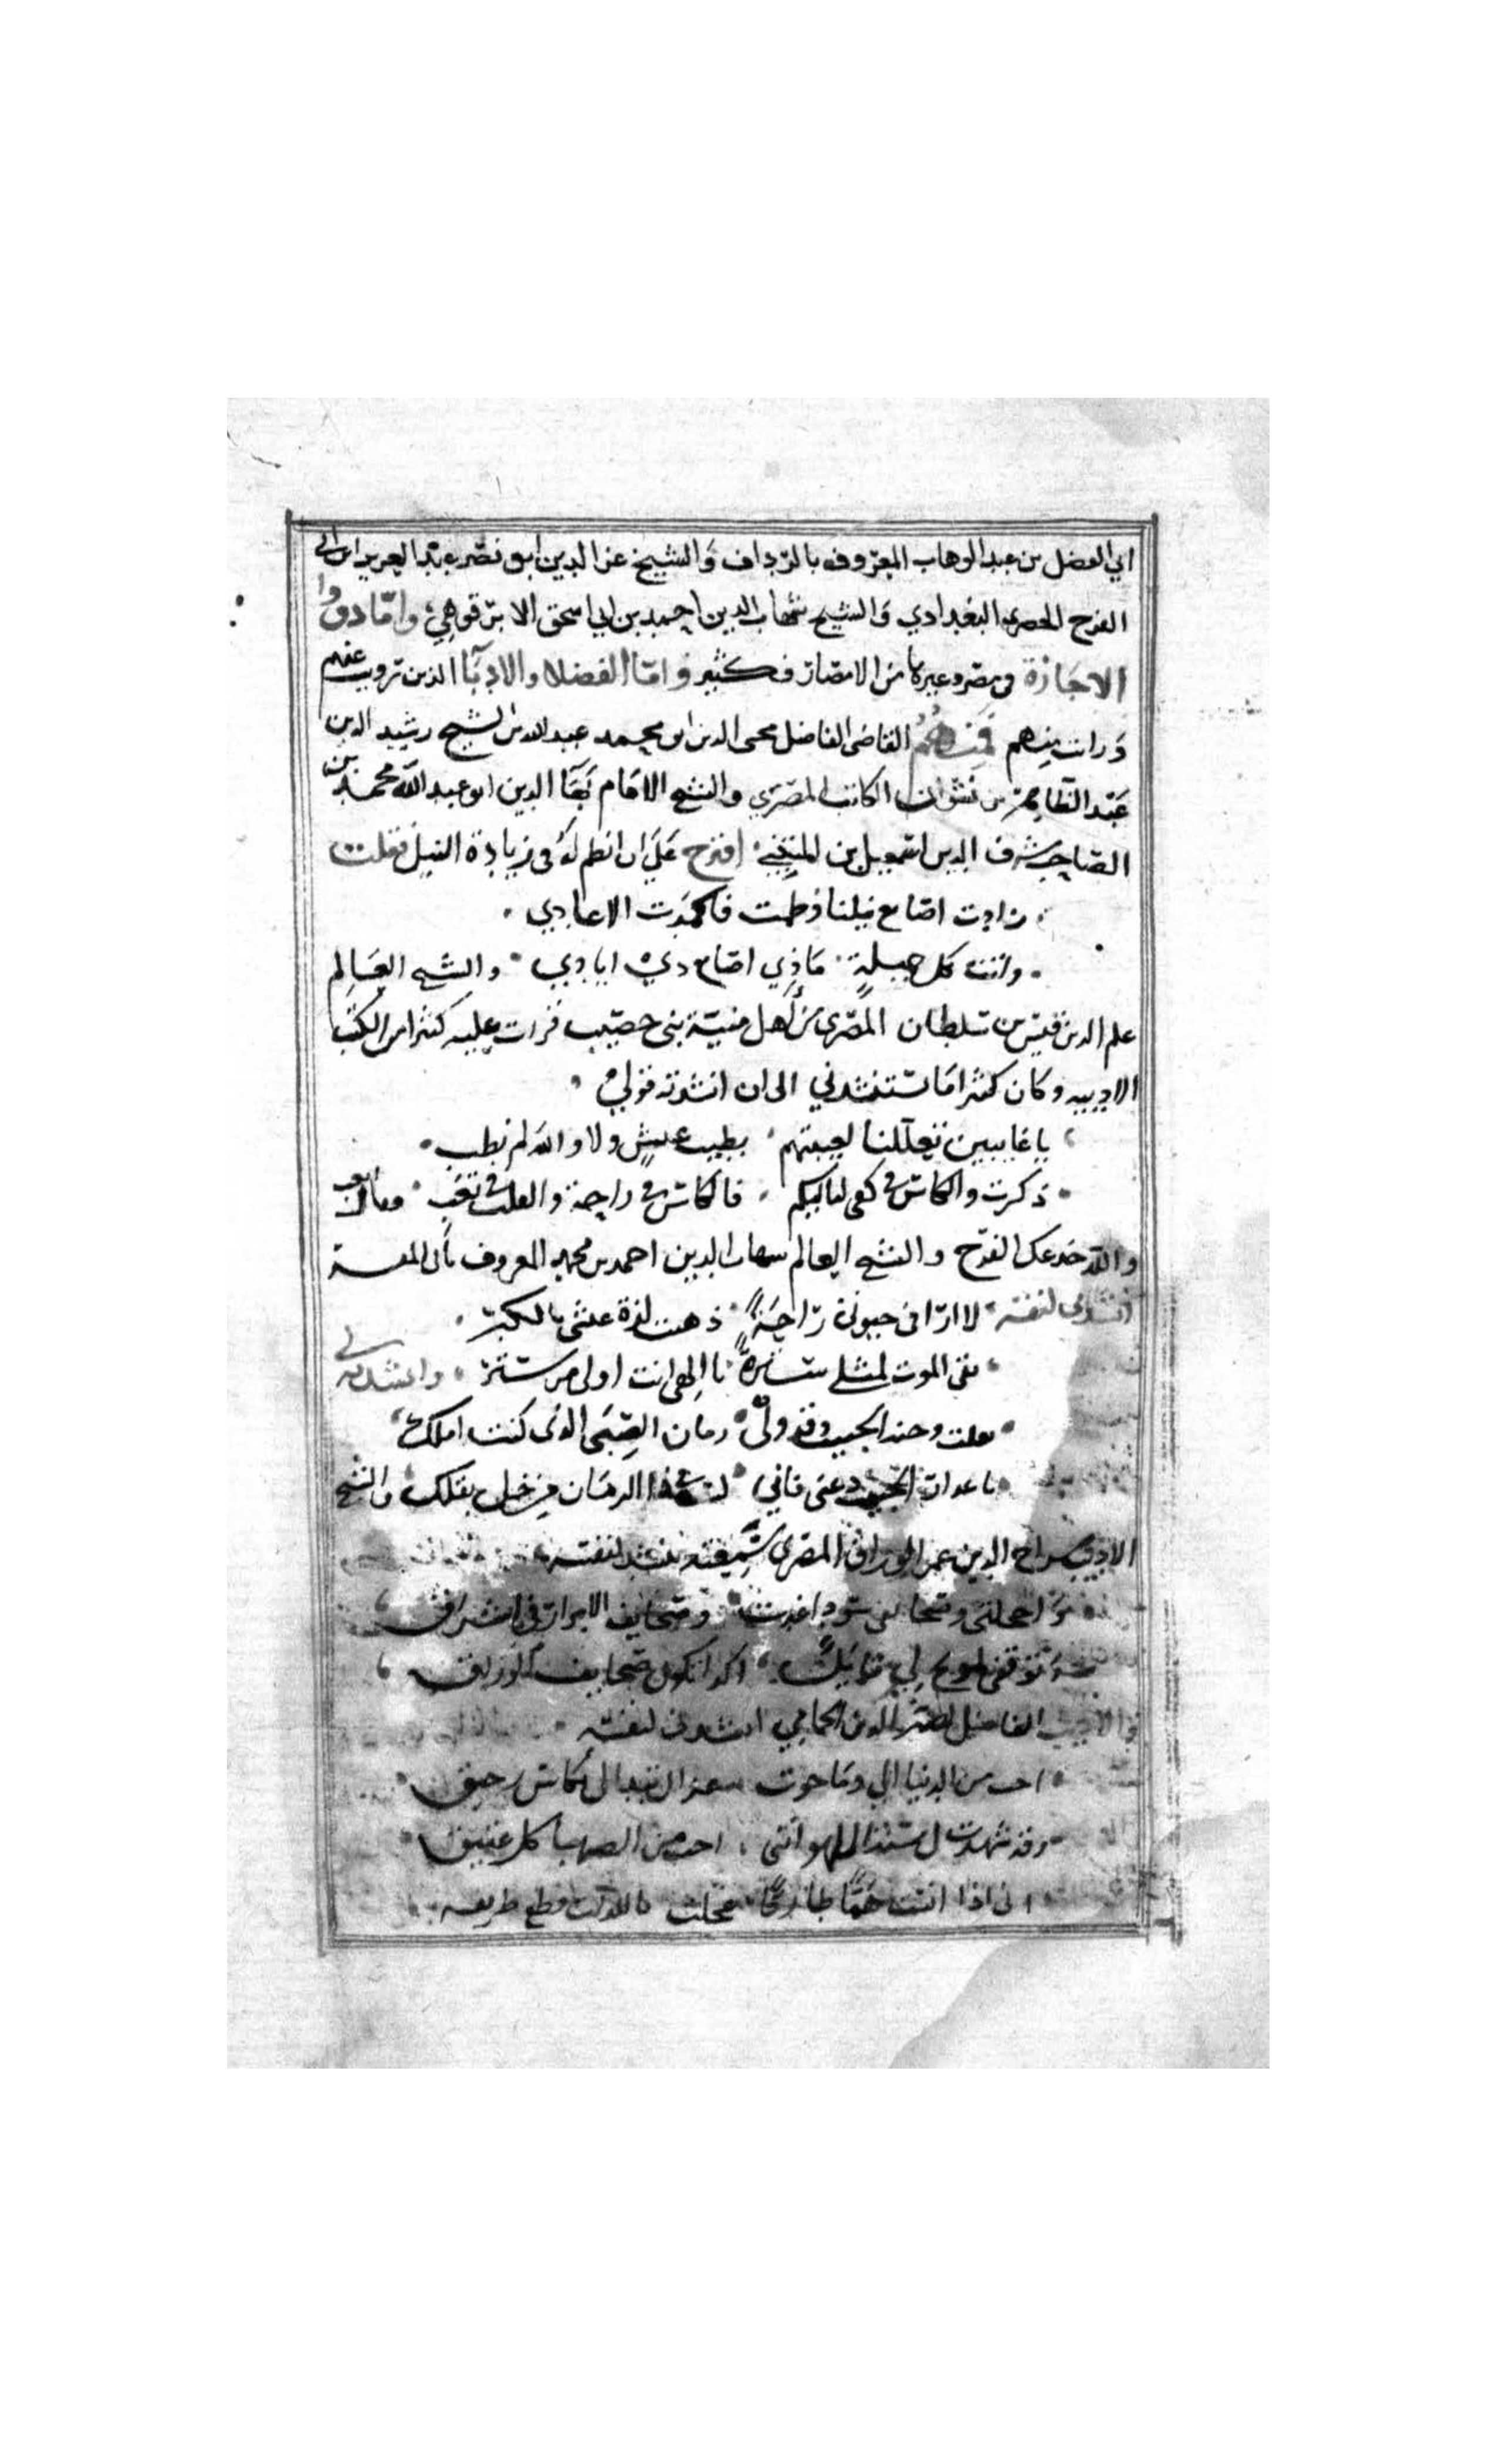 ابي الفضل بن عبد الوهاب المعروف بالرداف والشيخ عز الدين ابو نصر عبد العزيز ابن ابي
الفرج الحصري البغدادي والشيخ شهاب الدين احمد بن ابي اسحق الابرقوهي، واما ذووا
الاجازة في مصر وغيرها من الامصار فكثير واما الفضلا والادبآ الذين رويت عنهم
ورايت منهم فمنهم القاضي الفاضل محيي الدين ابو محمد عبد الله بن الشيخ رشيد الدين
عبد الظاهر بن نشوان الكاتب المصري والشيخ الامام بهآ الدين ابو عبد الله محمد بن
الصاحب شرف الدين اسمعيل بن اقترح علي ان انظم له في زيادة النيل فقلت
زادت اصابع نيلنا وطمت فاكمدت الاعادي
واتت بكل جميلة ما ذي اصابع ذي ايادي والشيخ العالم
علم الدين قيس بن سلطان المصري من أهل منية بني خصيب قرات عليه كثيرا من الكتب
الادبيه وكان كثيرا ما يستنشدني الى ان انشدته قولي
يا غايبين تعللنا لغيبتهم بطيب عيش ولا والله لم يطب
ذكرت والكاس في كفي لياليكم فالكاس في راحة والقلب في تعب
والله خدعك القدح والشيخ العالم شهاب الدين احمد بن المعروف بابي
انشدني لنفسه لا ارى في حيوتي راحة ذهبت لذة عيشي بالكبر
بقي الموت لمثلي سترة يا الهي انت اولى من ستر وانشدني
وعند الحبيب وقد ولى زمان الصبى الذي كنت املك
الحبيب دعني فاني والشيخ
الاديب سراج الدين عمر الوراق المصري سمعته ينشد لنفسه
وصحايفي سود غدت وصحايف الابرار في اشراق
لي قايل اكذا تكون صحايف الوراق
والاديب الفاضل نصير الدين الحمامي انشدني لنفسه
احب من الدنيا الي وما حوت غزال تبدا لي بكاس رحيق
وقد شهدت لي سنة اللهو انني احب من الصهبا كل عتيق
اني اذا انست هما طارقا عجلت باللذات قطع طريقه